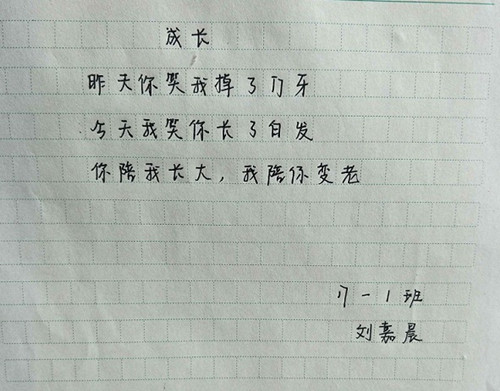 成长
昨天你笑我掉了门牙
今天我笑你长了白发
你陪我长大，我陪你变老
7-1班
刘嘉晨